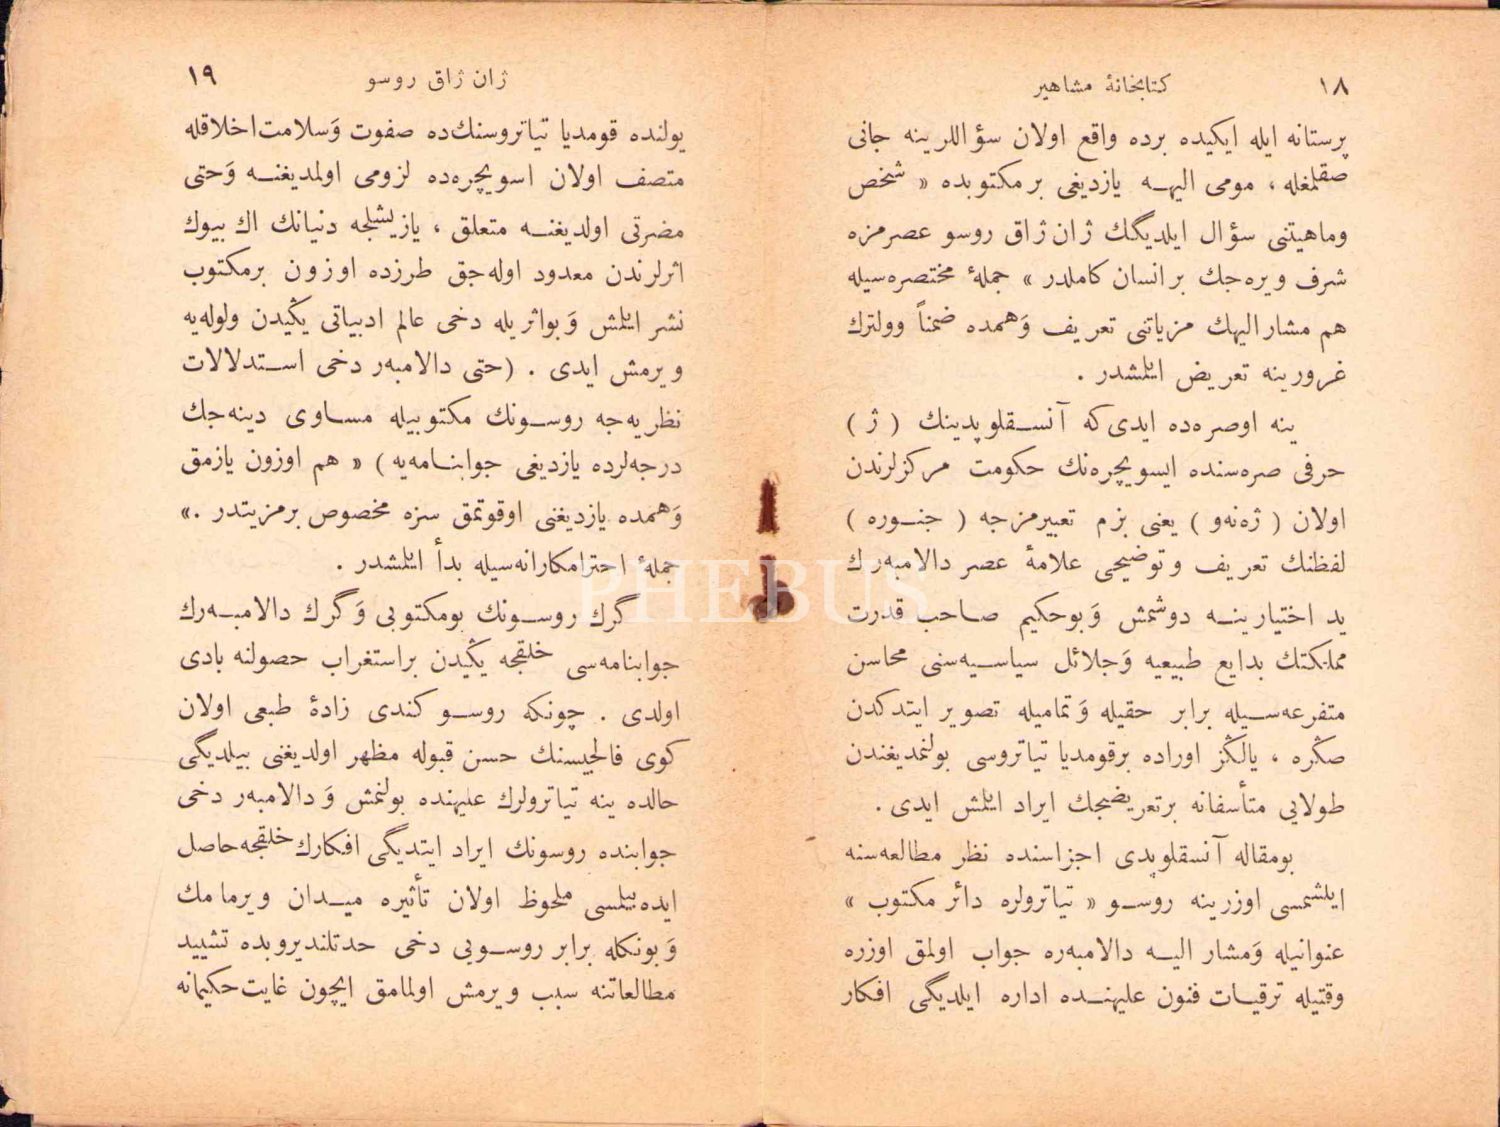 ١٨
كتابخانهٔ مشاهير
پرستانه ايله ايكيده برده واقع اولان سؤاللرينه جانى
صقلمغله ، مومى اليهـه يازديغى برمكتوبده « شخص
وماهيتنى سؤال ايلديگك ژان ژاق روسو عصرمزه
شرف ويره‌جك برانسان كاملدر » جملهٔ مختصره‌سيله
هم مشار اليهك مزياتنى تعريف وَهمده ضمناً وولترك
غرورينه تعريض ايلمشدر .
ينه اوصره‌ده ايدى‌كه آنسـقلوپدينك ( ژ )
حرفى صره‌سنده ايسويچره‌نك حكومت مركزلرندن
اولان ( ژه‌نه‌و ) يعنى بزم تعبيرمزجه ( جنـوره )
لفظنك تعريف وتوضيحى علامهٔ عصر دالامبه‌رك
يد اختيارينـه دوشمش وَبوحكيم صاحب قدرت
مملكتك بدايع طبيعيه وَجلائل سياسيه‌سنى محاسن
متفرعه‌سـيله برابر حقيله وَتماميله تصوير ايتدكدن
صكره ، يالكز اوراده برقومديا تياتروسى بولنمديغندن
طولايى متأسفانه برتعريضجك ايراد ايلمش ايدى .
بومقاله آنسقلوپدى اجزاسنده نظر مطالعه‌سنه
ايلشمسى اوزرينه روسـو « تياترولره دائر مكتوب »
عنوانيله وَمشار اليـه دالامبه‌ره جواب اولمق اوزره
وقتيله ترقيـات فنون عليهنـده اداره ايلديگى افكار
١٩
ژان ژاق روسو
يولنده قومديا تياتروسنك‌ده صفوت وَسلامت‌اخلاقله
متصف اولان اسويچره‌ده لزومى اولمديغنـه وَحتى
مضرتى اولديغنـه متعلق ، يازيشلجه دنيانك اك بيوك
اثرلرندن معدود اوله‌جق طرزده اوزون برمكتوب
نشر ايلمش وَبواثريله دخى عالم ادبياتى يكيدن ولوله‌يه
ويرمش ايدى . (حتى دالامبه‌ر دخى اسـتدلالات
نظريه‌جه روسـونك مكتوبيله مسـاوى دينه‌جك
درجه‌لرده يازديغى جوابنـامه‌يه ) « هم اوزون يازمق
وَهمده يازديغنى اوقوتمق سزه مخصوص برمزيتدر .»
جملهٔ احترامكارانه‌سيله بدأ ايلمشدر .
گرك روسـونك بومكتوبى وَگرك دالامبـه‌رك
جوابنامه‌سى خلقجه يكيدن براستغراب حصولنه بادى
اولدى . چونكه روسـو كندى زادهٔ طبعى اولان
كوى فالجيسنك حسن قبوله مظهر اولديغنى بيلديگى
حالده ينه تياترولرك عليهنده بولنمش وَدالامبه‌ر دخى
جوابنده روسونك ايراد ايتديگى افكارك‌خلقجه‌حاصل
ايده‌بيلمسى ملحوظ اولان تأثيره ميـدان ويرمامك
وَبونكله برابر روسـويى دخى حدتلنديروبده تشييد
مطالعاتنه سبب ويرمش اولمامق ايچون غايت‌حكيمانه
PHEBUS